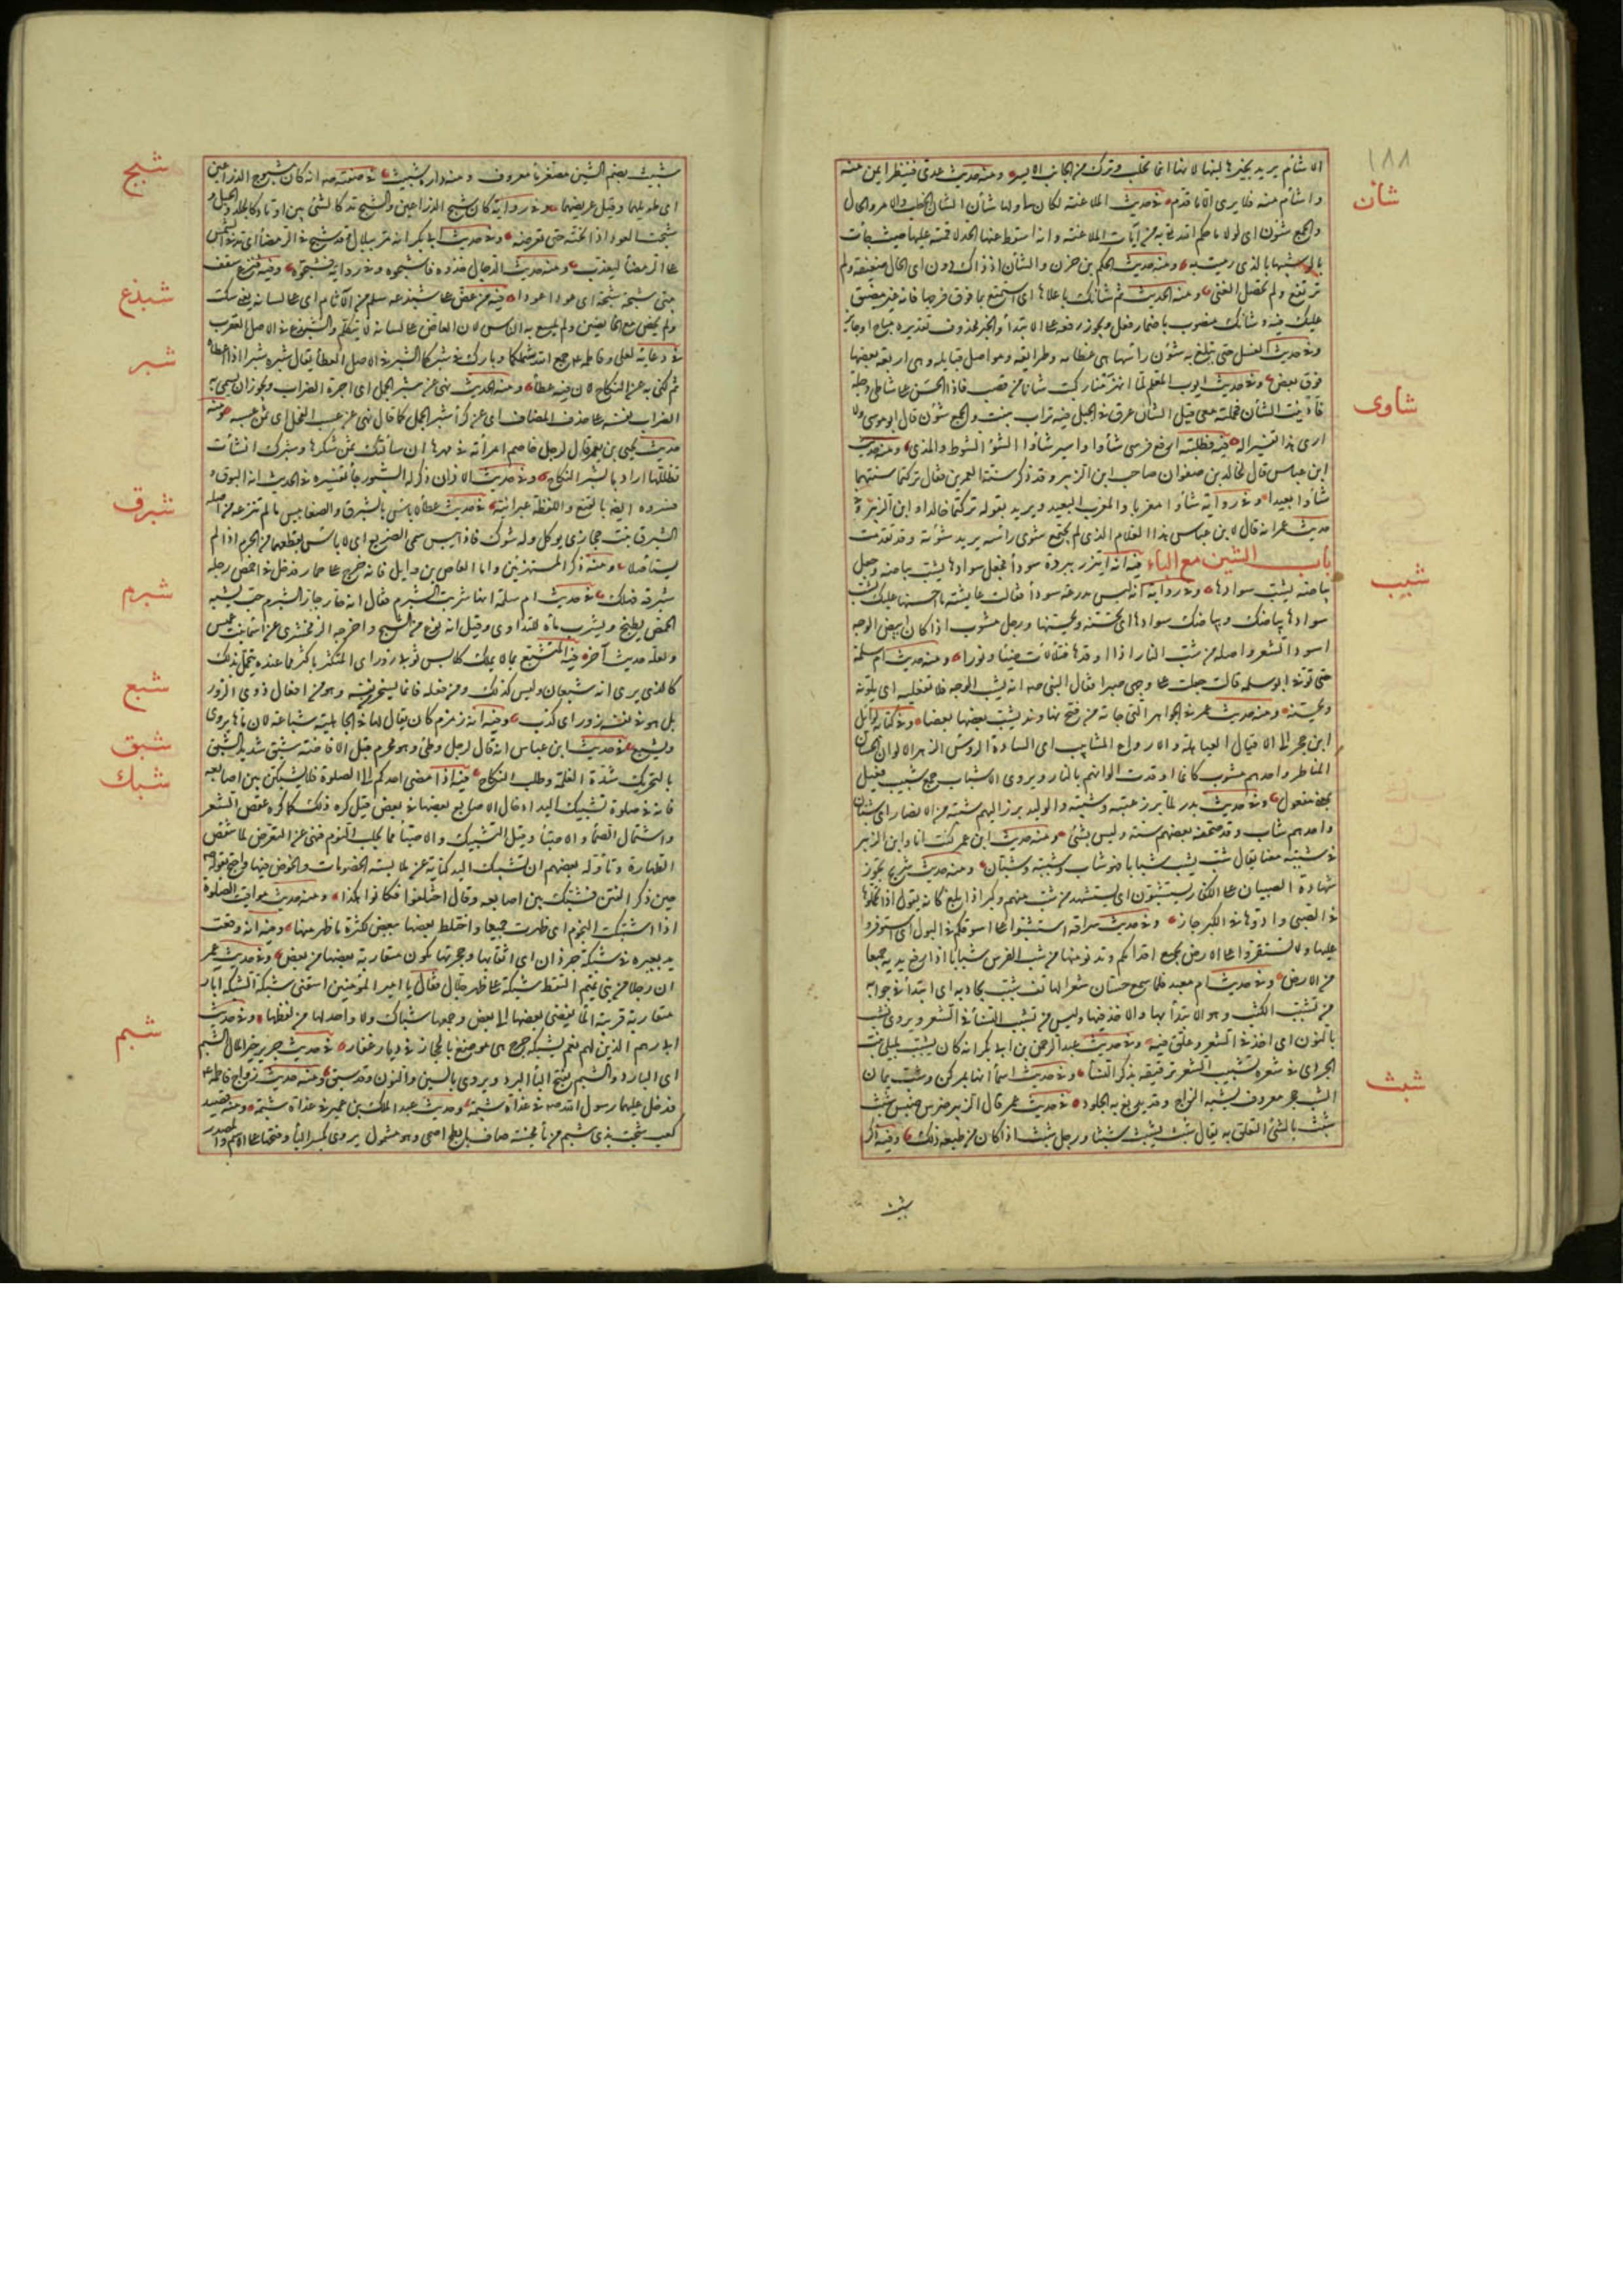 ١٨٨
شان
الاشأم يريد بخيرها لبنها لانها انما تحلب وتركب من الجانب الايسر ومنه حديث عدى فينظر ايمن منه
واشأم منه فلا يرى الا ما قدم فى حديث الملاعنة لكان لى ولها شأن الشأن الخطب والامر والحال
والجمع شئون اى لولا ما حكم الله به من آيات الملاعنة وانه اسقط عنها الحد لاقمته عليها حيث جاءت
بالولد شبيها بالذى رميت به ومنه حديث الحكم بن حزن والشأن اذ ذاك دون اى الحال ضعيفة ولم
ترتفع ولم يحصل الغنى ومنه الحديث ثم شأنك باعلاها اى استمتع بما فوق فرجها فانه غير مضيق
عليك فيه وشأنك منصوب باضمار فعل ويجوز رفعه على الابتداء والخبر محذوف تقديره مباح او جائز
وفى حديث الغسل حتى تبلغ به شؤن رأسها هى عظامه وطرائقه ومواصل قبائله وهى اربعة بعضها
فوق بعض وفى حديث ايوب المعلم لما انهزمنا ركبت شأنا من قصب فاذا الحسن على شاطئ دجلة
شاوى
فأدنيت الشأن فحملته معى قيل الشأن عرق فى الجبل فيه تراب ينبت والجمع شئون قال ابو موسى ولا
ارى هذا تفسيرا له فيه فطلبته ارفع فرسى شأوا واسير شأوا الشأو الشوط والمدى ومنه حديث
ابن عباس قال لخالد بن صفوان صاحب ابن الزبير وقد ذكر سنة العمرين فقال تركتما سنتهما
شأوا بعيدا وفى رواية شأوا مغربا والمغرب البعيد ويريد بقوله تركتما خالدا وابن الزبير فى
حديث عمر انه قال لابن عباس هذا الغلام الذى لم يجتمع شوى رأسه يريد شؤنه وقد تقدمت
شبب
باب الشين مع الباء فيه انه ائتزر ببردة سوداء فجعل سوادها يشب بياضه وجعل
بياضه يشب سوادها وفى رواية انه لبس مدرعة سوداء فقالت عايشة ما احسنها عليك يشب
سوادها بياضك وبياضك سوادها اى تحسنه ويحسنها ورجل مشبوب اذا كان ابيض الوجه
اسود الشعر واصله من شب النار اذا اوقدها فتلألأت ضياء ونورا ومنه حديث ام سلمة
حتى توفى ابو سلمة قالت جعلت على وجهى صبرا فقال النبى صه انه يشب الوجه فلا تفعليه اى يلونه
ويحسنه ومنه حديث عمر فى الجواهر التى جاءته من فتح نهاوند يشب بعضها بعضا وفى كتابه لوائل
ابن حجر الى الاقيال العباهلة والارواع المشابيب اى السادة الرؤس الزهر الالوان الحسان
المناظر واحدهم مشبوب كانما اوقدت الوانهم بالنار ويروى الاشباب جمع شبيب فعيل
بمعنى مفعول وفى حديث بدر لما برز عتبة وشيبة والوليد برز اليهم شببة من الانصار اى شبان
واحدهم شاب وقد صحفه بعضهم ستة وليس بشئ ومنه حديث ابن عمر كنت انا وابن الزبير
فى شببة معنا يقال شب يشب شبابا فهو شاب وشببة وشبان ومنه حديث شريح تجوز
شهادة الصبيان على الكبار يستشبون اى يستشهد من شب منهم وكبر اذا بلغ كانه يقول اذا تحملوها
فى الصبى وادوها فى الكبر جاز وفى حديث سراقة استشبوا على اسوقكم فى البول اى استوفزوا
عليها ولا تستقروا على الارض بجميع اقدامكم وتدنو منها من شب الفرس شبابا اذا رفع يديه جميعا
من الارض وفى حديث ام معبد فلما سمع حسان شعر الهاتف شبب يجاوبه اى ابتدأ فى جوابه
من تشبيب الكتب وهو الابتداء بها والاخذ فيها وليس من تشبيب النساء فى الشعر ويروى نشب
بالنون اى اخذ فى الشعر وعلق فيه وفى حديث عبد الرحمن بن ابى بكر انه كان يشبب بليلى بنت
الجودى فى شعره تشبيب الشعر ترقيقه بذكر النساء وفى حديث اسماء انها بمركن وشب يمان
شبث
الشب حجر معروف يشبه الزاج وقد يدبغ به الجلود فى حديث عمر قال الزبير ضرس ضبس شبث
شبث بالشئ التعلق به يقال شبث يشبث شبثا ورجل شبث اذا كان من طبعه ذلك وفيه ذكر
شبث
شبيث بضم الشين مصغرا ماء معروف ومنه دارة شبيث فى صفته صه انه كان مشبوح الذراعين
شبح
اى طويلهما وقيل عريضهما وفى رواية كان شبح الذراعين والشبح مدك الشئ بين اوتاد كالجلد والحبل و
شبحت العود اذا نحته حتى تعرضه وفى حديث ابى بكر انه مر ببلال وقد شبح فى الرمضاء اى مد فى الشمس
على الرمضاء ليعذب ومنه حديث الدجال خذوه فاشبحوه وفى رواية فشجوه وفيه فنزع سقف
شبدع
بيتى شبحة شبحة اى عودا عودا فيه من عض على شبدعه سلم من الآثام اى على لسانه يعنى سكت
ولم يخض مع الخائضين ولم يلسع به الناس لان العاض على لسانه لا يتكلم والشبدع فى الاصل العقرب
شبر
فى دعائه لعلى وفاطمة جمع الله شملكما وبارك فى شبركما الشبر فى الاصل العطاء يقال شبره شبرا اذا اعطاه
ثم كنى به عن النكاح لان فيه عطاء ومنه الحديث نهى عن شبر الجمل اى اجرة الضراب ويجوز ان يسمى به
الضراب نفسه على حذف المضاف اى عن كراء شبر الجمل كما قال نهى عن عسب الفحل اى ثمن عسبه ومنه
حديث يحيى بن يعمر قال لرجل خاصم امرأته فى مهرها ان سألتك ثمن شكرها وشبرك انشأت
تطلها اراد بالشبر النكاح وفى حديث الاذان ذكر له الشبور جاء تفسيره فى الحديث انه البوق و
شبرق
فسروه ايضا بالقبع واللفظة عبرانية فى حديث عطاء لا بأس بالشبرق والضغابيس ما لم تنزعه من اصله
الشبرق نبت حجازى يؤكل وله شوك فاذا يبس سمى الضريع اى لا بأس بقطعهما من الحرم اذا لم
يستأصلا ومنه فى ذكر المستهزئين واما العاص بن وائل فانه خرج على حمار فدخل فى اخمص رجله
شبرم
شبرقة فهلك فى حديث ام سلمة انها شربت الشبرم فقال انه حار جار الشبرم حب يشبه
الحمص يطبخ ويشرب ماؤه للتداوى وقيل انه نوع من الشيح واخرجه الزمخشرى عن اسماء بنت عميس
شبع
ولعله حديث آخر فيه المتشبع بما لا يملك كلابس ثوبى زور اى المتكثر باكثر مما عنده يتجمل بذلك
كالذى يرى انه شبعان وليس كذلك ومن فعله فانما يسخر من نفسه وهو من افعال ذوى الزور
بل هو فى نفسه زور اى كذب وفيه ان زمزم كان يقال لها فى الجاهلية شباعة لان ماءها يروى
شبق
ويشبع فى حديث ابن عباس انه قال لرجل وطئ وهو محرم قبل الافاضة شبق شديد الشبق
شبك
بالتحريك شدة الغلمة وطلب النكاح فيه اذا مضى احدكم الى الصلوة فلا يشبكن بين اصابعه
فانه فى صلوة تشبيك اليد ادخال الاصابع بعضها فى بعض قيل كره ذلك كما كره عقص الشعر
واشتمال الصماء والاحتباء وقيل التشبيك والاحتباء مما يجلب النوم فنهى عن التعرض لما ينقض
الطهارة وتأوله بعضهم ان تشبيك اليد كناية عن ملابسة الخصومات والخوض فيها واحتج بقوله صه
حين ذكر الفتن فشبك بين اصابعه وقال اختلفوا فكانوا هكذا ومنه حديث مواقيت الصلوة
اذا اشتبكت النجوم اى ظهرت جميعا واختلط بعضها ببعض لكثرة ما ظهر منها وفيه انه وقعت
يد بعيره فى شبكة جرذان اى انقابها وجحرتها تكون متقاربة بعضها من بعض وفى حديث عمر
ان رجلا من بنى تميم التقط شبكة على ظهر جلال فقال يا امير المؤمنين اسقنى شبكة الشبكة آبار
متقاربة قريبة الماء يفضى بعضها الى بعض وجمعها شباك ولا واحد لها من لفظها وفى حديث
شبم
ابى رهم الذين لهم نعم بشبكة جرح هى موضع بالحجاز فى ديار غفار فى حديث جرير خير الماء الشبم
اى البارد والشبم بفتح الباء البرد ويروى بالسين والنون وقد سبق ومنه حديث زواج فاطمة ع
فدخل عليها رسول الله صه فى غداة شبمة وحديث عبد الملك بن عمير فى غداة شبمة ومنه قصيد
كعب شجت بذى شبم من ماء محنية صاف بابطح اضحى وهو مشمول يروى بكسر الباء وفتحها على الاسم والمصدر